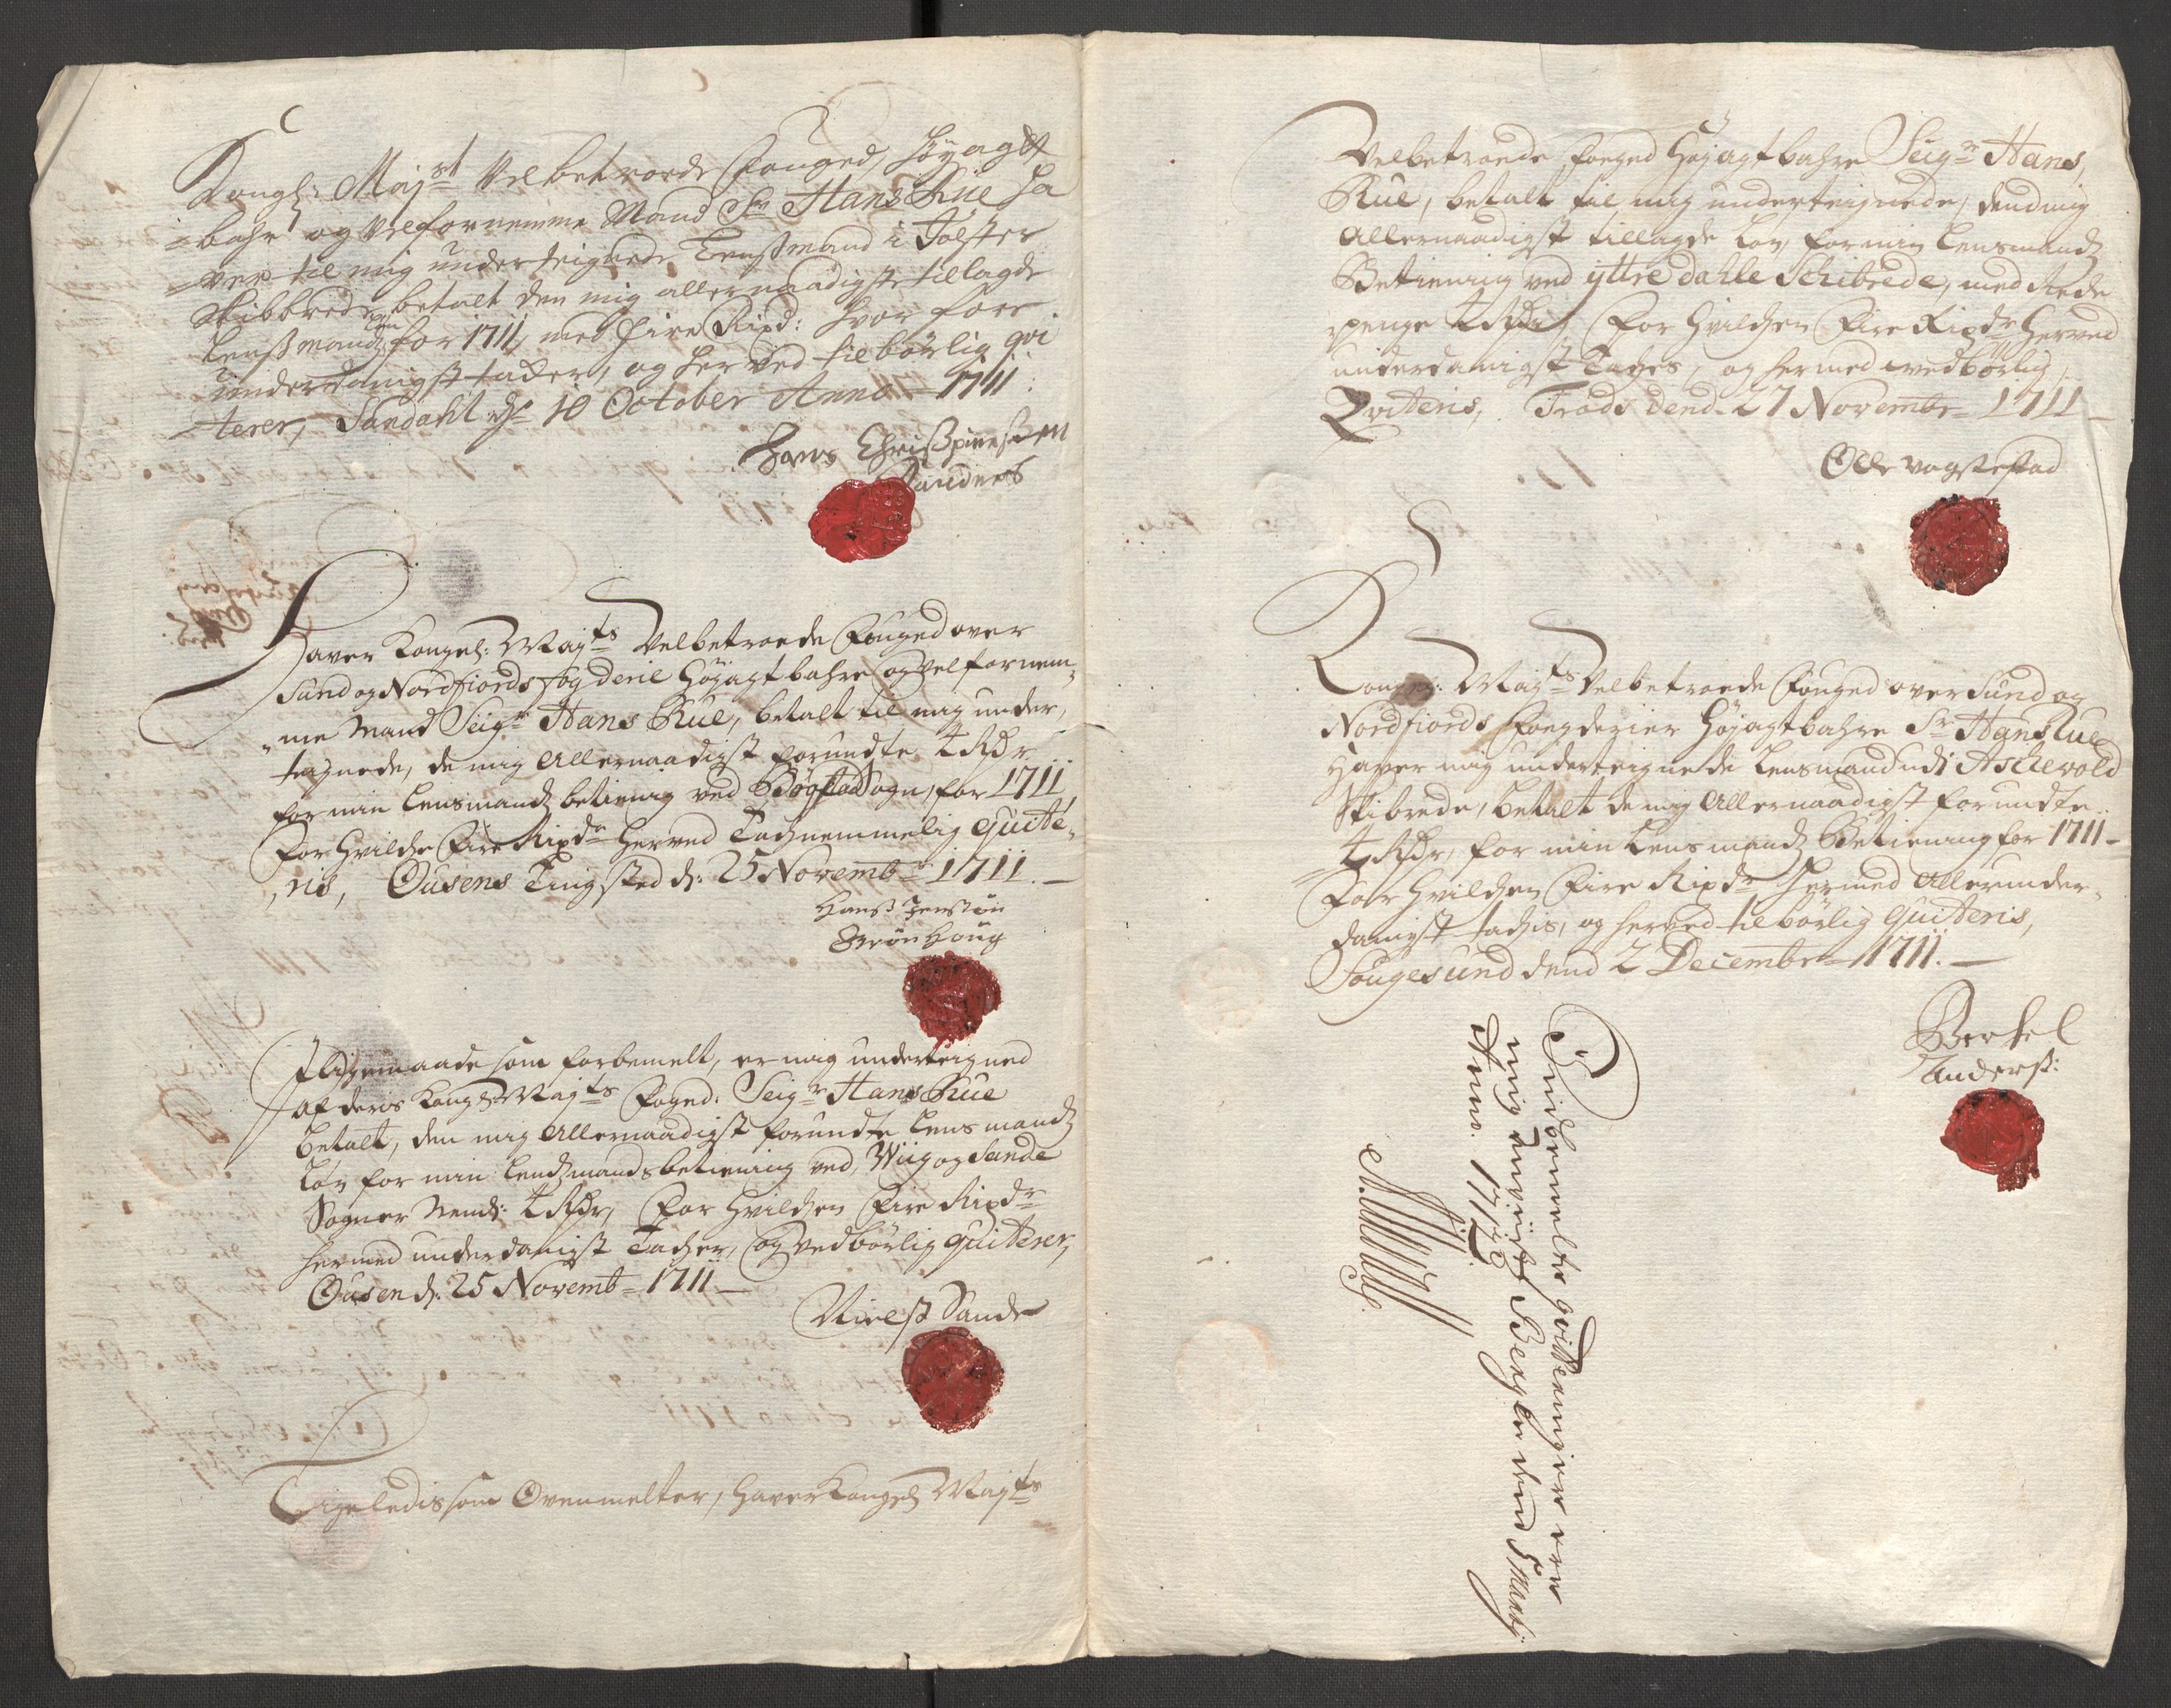 Kongl: Maj.st Velbetroede Fouged, Høyagt
=bahr og Velfornemme Mand Sr Hans Rue Ha
=ver til mig underteignede Lensmand i Jølster
Skibbrede betalt den mig allernaadigste tillagde
Lensmandz løn for 1711, med fire Rixd: Hvor fore
underdanigst tacker, og her ved tilbørlig qvi
=terer, Sandahl d. 10 October Anno 1711:
Hans
Sandnes
Haver Kongel: Maj.ts Velbetroede Fouged over
Sund og Nordfiords fogderie Høyagtbahre og velfornem-
me Mand Seigr Hans Rue, betalt til mig under,
teignede, de mig allernaadigst forundte 4 Rdr
for min Lensmandz betiening ved Sogn, for 1711
For Hvilche Fire Rixdr herved Tachnemmelig quite,
,ris, Ousens Tingsted d: 25 Novembr 1711. —
Hans Jensøn
Grønhoug
I Ligemaade som forbemelt, er mig underteigned
af deris Kongl Maj.ts Foged: Seigr Hans Rue
betalt, den mig allernaadigst forundte Lensmandz
Løn for min Lendzmands betiening ved, Wiig og Sande
Sogner Nemd: 4 Rdr, For Hvilchen Fire Rixdr
hermed underdanigst Tacher, og vedbørlig quiterer,
Ousen d: 25 Novemb= 1711 —
Niels Sande
Ligeledis som Ovenmelter, haver Kongel Maj.ts
Velbetroede Foeged Høyagtbahre Seigr Hans,
Rue, betalt til mig underteignede, dend mig
Allernaadigst tillagde Løn, for min Lensmandz
Betiening ved yttre dahle Schibrede, med Rede
penge 4 Rdr, For Hvilchen Fire Rixdr herved
underdanigst Taches, og hermed vedbørlig,
Qviteris, Trads dend 27 Novembr= 1711 —
Ole
Kongel: Maj.ts Velbetroede Fouged over Sund og
Nordfiords Fogderier Høyagtbahre Sr Hans Rue
Haver mig underteignede Lensmand udi Aschevold
Skibrede, betalt de mig Allernaadigst forundte
4 Rdr, for min Lensmandz Betiening for 1711 —
For Hvilchen Fire Rixdr hermed Allerunder-
danigst tachis, og herved tilbørlig Quiteris,
Sougesund dend 2 Decembr= 1711. —
Bertel
Anders:
qvitteringer er
mig anviist Bergen dend Martij
Anno. 1712.